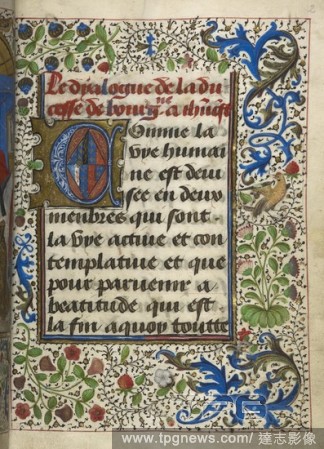 Le dyalogue de la du
cesse de bourgne a ihucst
Comme la
vye humai
ne est deui
see en deux
menbres qui sont
la vye actiue et con
templatiue et que
pour paruenir a
beatitude qui est
la fin a quoy toutte
2
www.tpgnews.com/ 達志影像